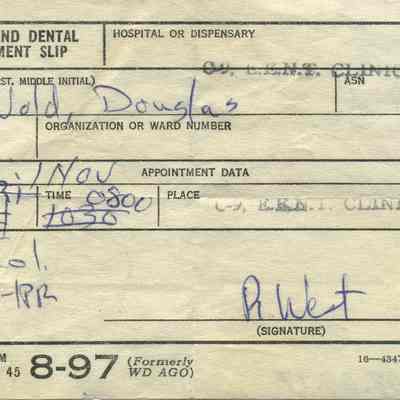 ND DENTAL
MENT SLIP
HOSPITAL OR DISPENSARY
C-9, E.E.N.T. CLINIC
ST, MIDDLE INITIAL)
ASN
Wold, Douglas
ORGANIZATION OR WARD NUMBER
1 Nov
APPOINTMENT DATA
TIME 0800
1030
PLACE
C-9, E.E.N.T. CLINI
R West
(SIGNATURE)
M
45 8-97 (Formerly
WD AGO)
16—4347